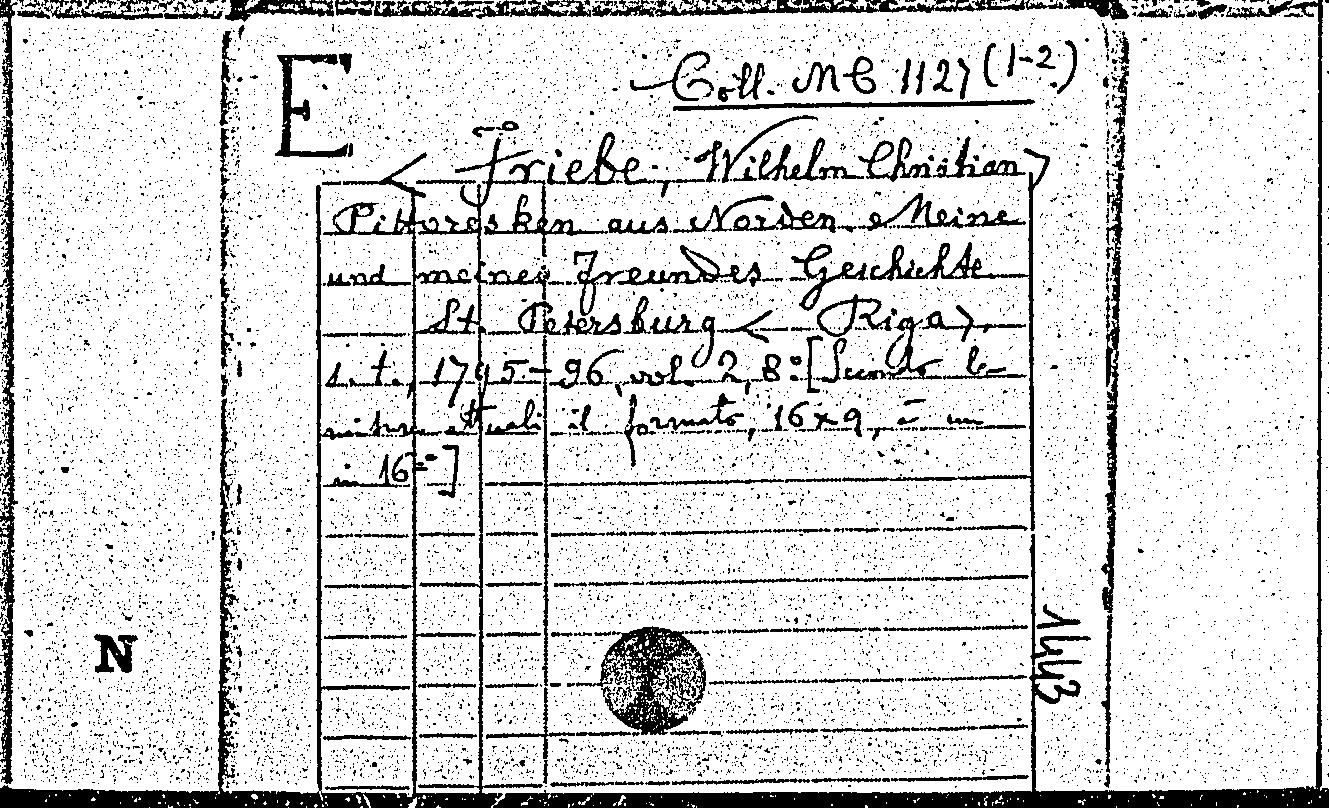 E
Coll. MC 1127 (1-2.)
< Friebe, Wilhelm Christian >
Pittoresken aus Norden. Meine
und meines Freundes Geschichte.
St. Petersburg < Riga >,
s. t., 1795-96, vol. 2, 8º [Secondo le
misure attuali il formato, 16x9, è un
in 16º]
N
1443